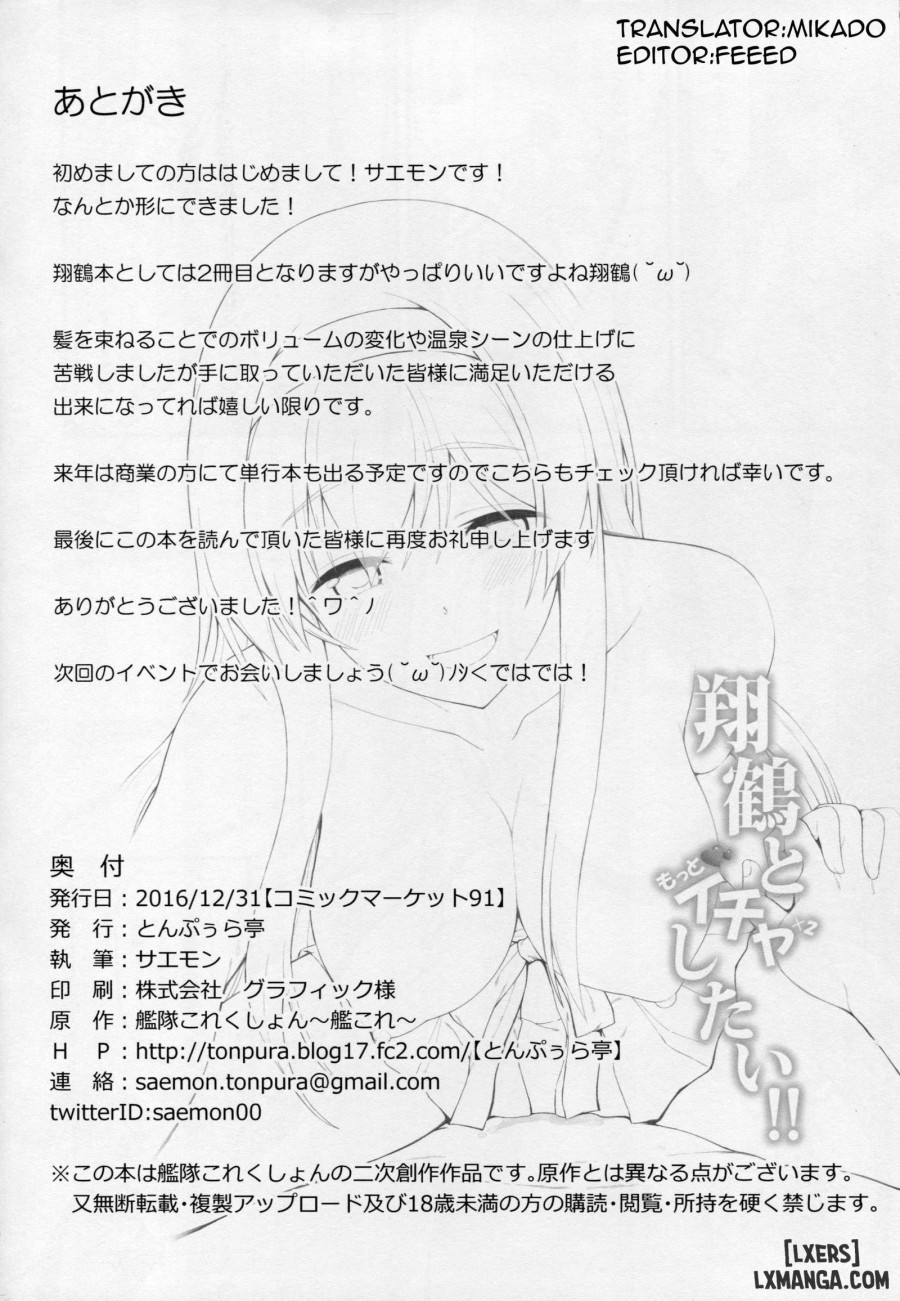 TRANSLATOR:MIKADO
EDITOR:FEEED
あとがき
初めましての方ははじめまして！サエモンです！
なんとか形にできました！
翔鶴本としては2冊目となりますがやっぱりいいですよね翔鶴(˘ω˘)
髪を束ねることでのボリュームの変化や温泉シーンの仕上げに
苦戦しましたが手に取っていただいた皆様に満足いただける
出来になってれば嬉しい限りです。
来年は商業の方にて単行本も出る予定ですのでこちらもチェック頂ければ幸いです。
最後にこの本を読んで頂いた皆様に再度お礼申し上げます
ありがとうございました！＾ワ＾ノ
次回のイベントでお会いしましょう(˘ω˘)ﾉｼくではでは！
翔鶴と
もっと
イチャ×2
したい!!
奥　付
発行日：2016/12/31【コミックマーケット91】
発　行：とんぷぅら亭
執　筆：サエモン
印　刷：株式会社　グラフィック様
原　作：艦隊これくしょん～艦これ～
H　P：http://tonpura.blog17.fc2.com/【とんぷぅら亭】
連　絡：saemon.tonpura@gmail.com
twitterID:saemon00
※この本は艦隊これくしょんの二次創作作品です。原作とは異なる点がございます。
又無断転載・複製アップロード及び18歳未満の方の購読・閲覧・所持を硬く禁じます。
[LXERS]
LXMANGA.COM